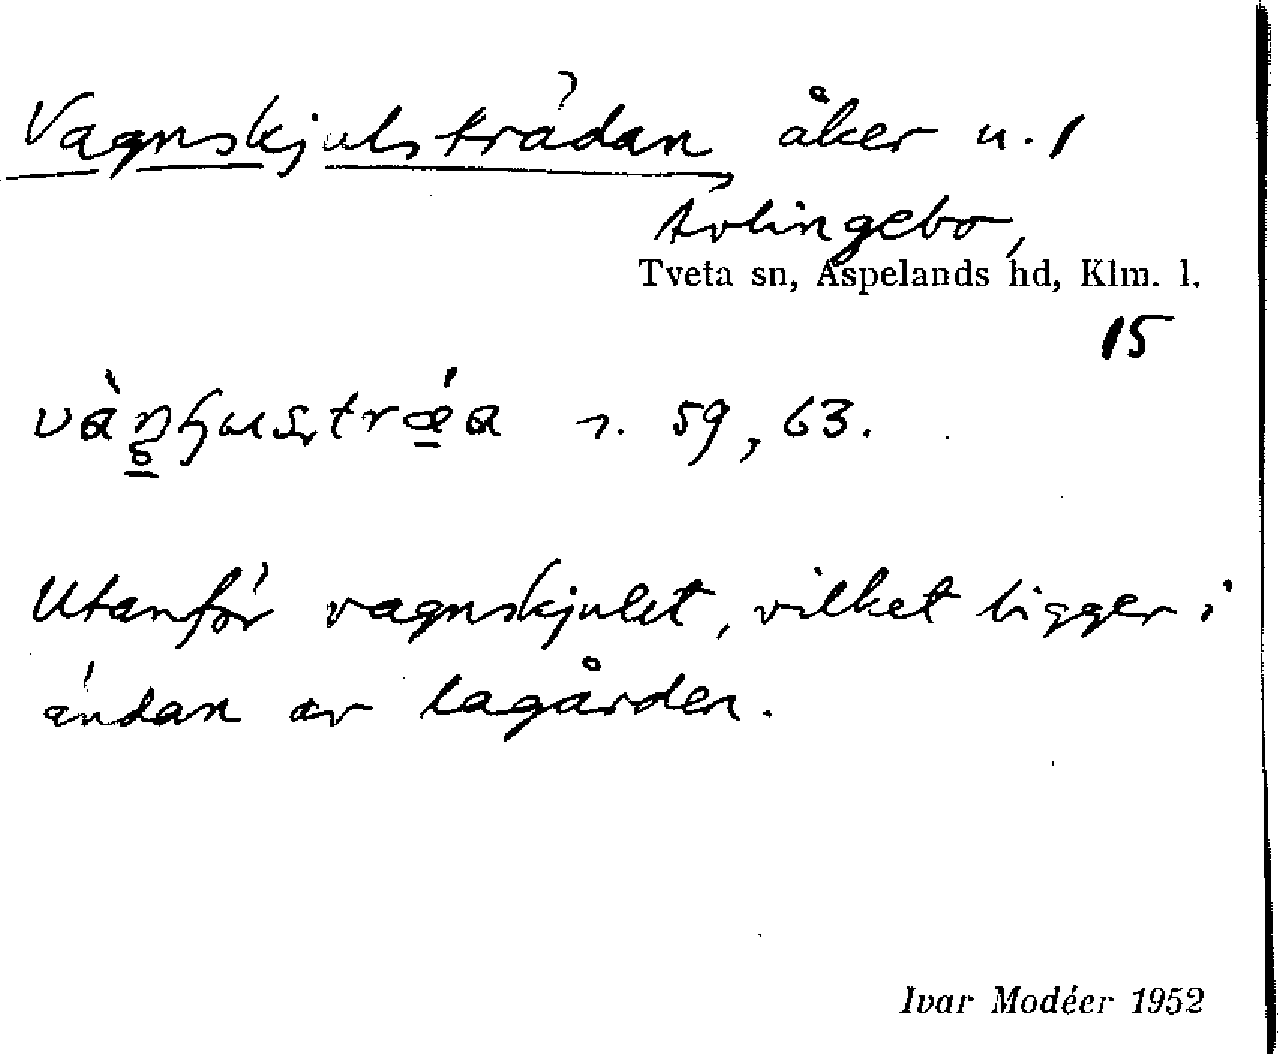 Vagnskjulsträdan åker u. 1
Tvlingebo,
Tveta sn, Aspelands hd, Klm. l.
15
r. 59, 63.
Utanför vagnskjulet, vilket ligger i
ändan av lagården.
Ivar Modéer 1952